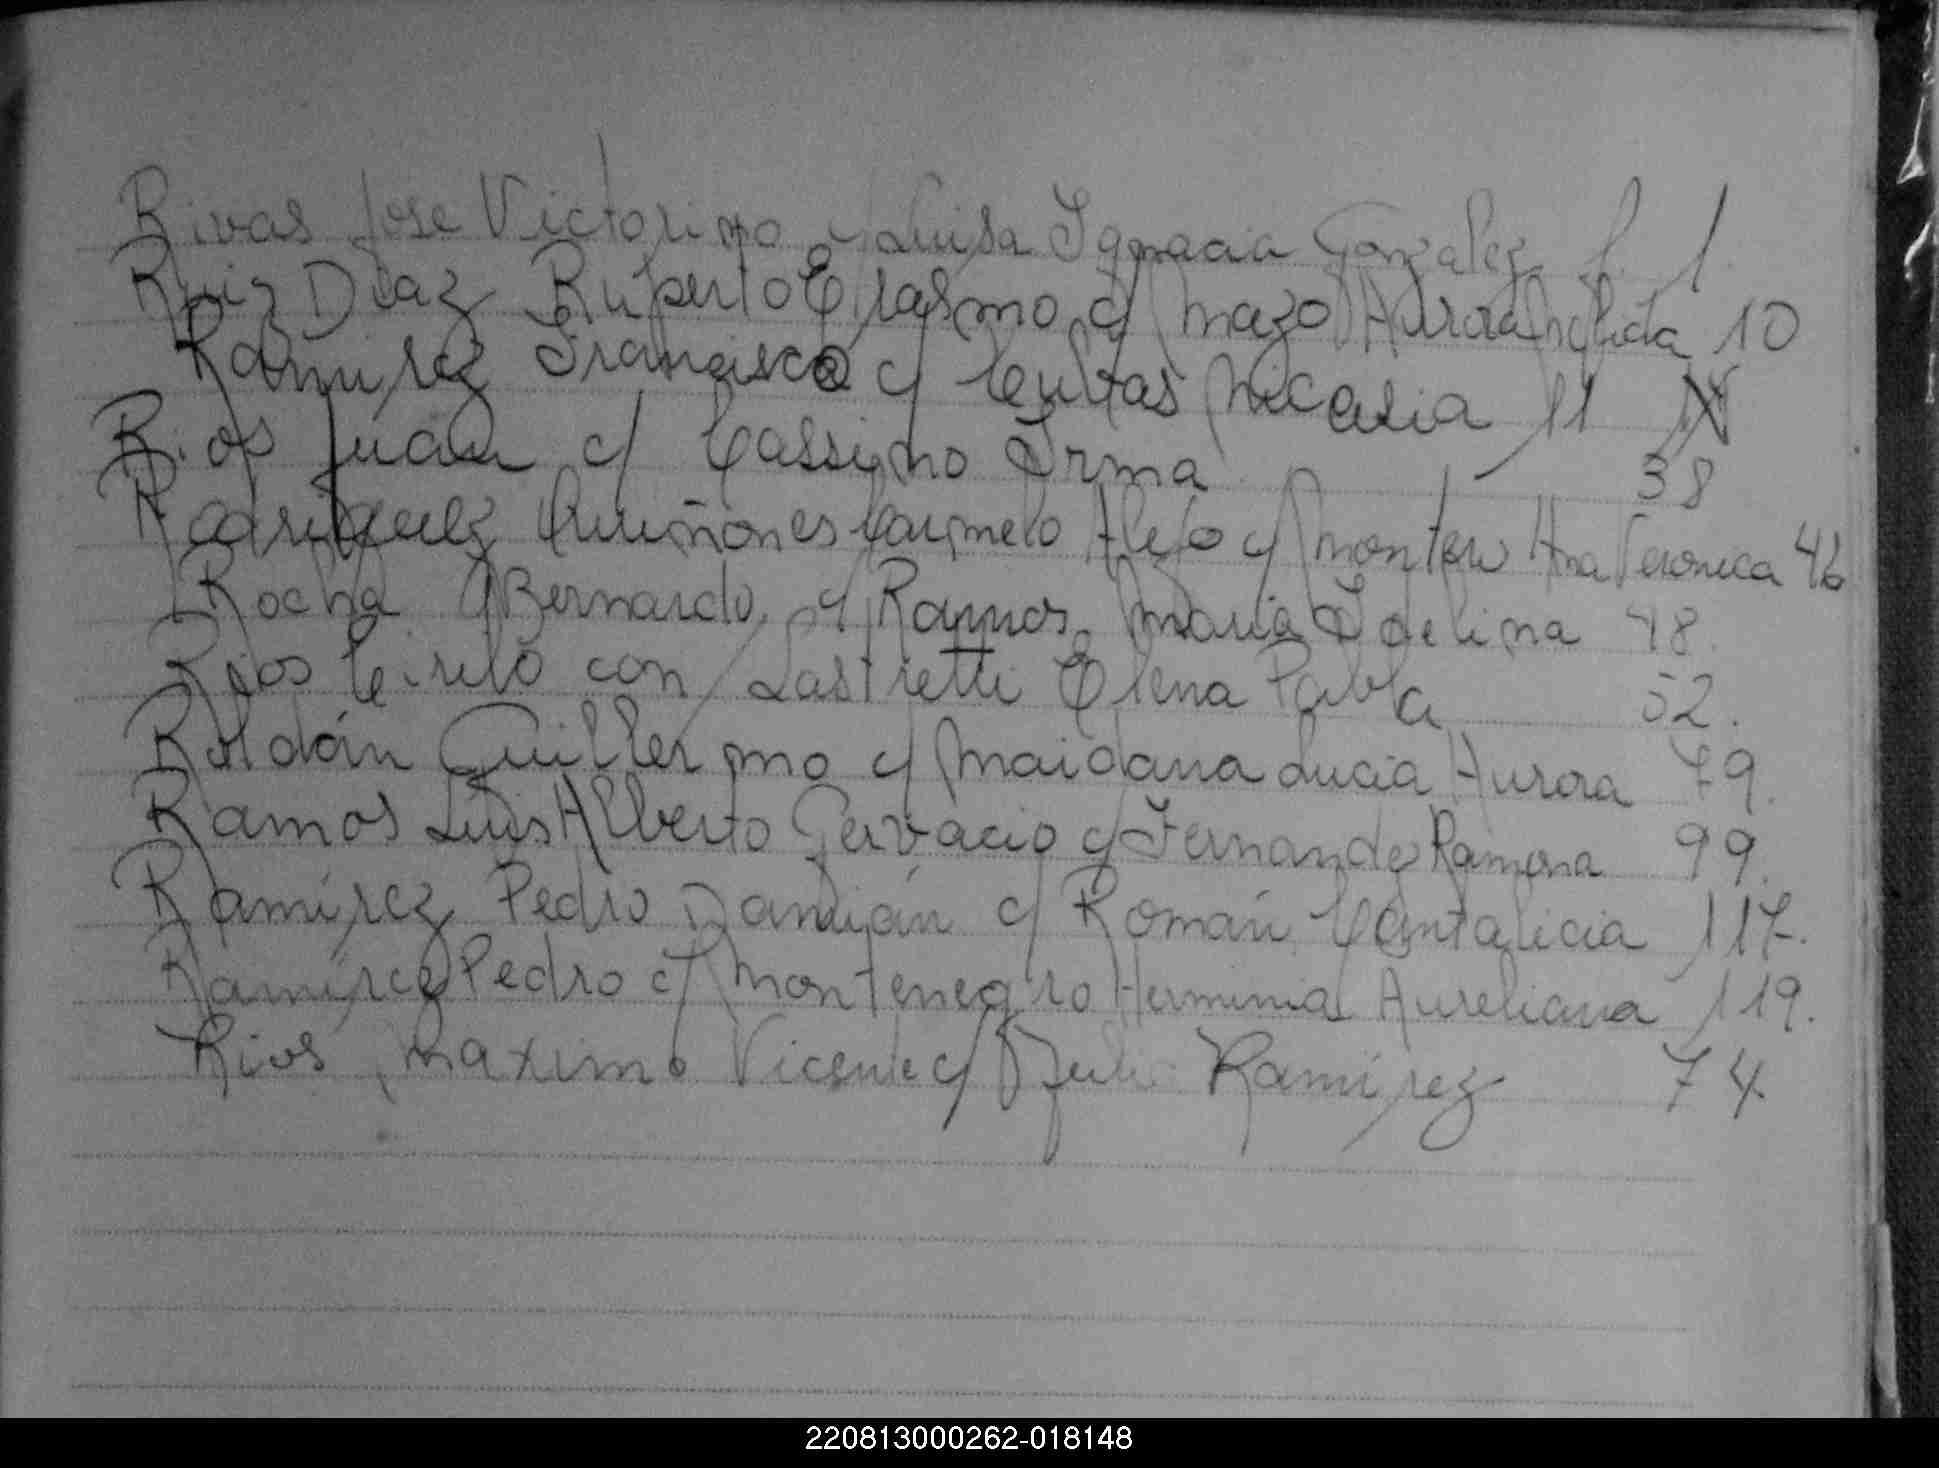 Rivas Jose Victorino c/ Luisa Ignacia Gonzalez f. 1
Ruiz Diaz Ruperto Erasmo c/ Mazo Aurora 10
Ramirez Francisco c/ Cuevas Nicasia 11
Rios Juan c/ Cassino Irma 38
Rodriguez Quiñones Carmelo Alejo c/ Montero Ana Veronica 46
Rocha Bernardo c/ Ramos Maria Idelina 48.
Rios Cirilo con Lastretti Elena Pabla 52.
Roldán Guillermo c/ Maidana Lucia Aurora 79.
Ramos Luis Alberto Gervacio c/ Fernandez Ramona 99.
Ramírez Pedro Damián c/ Román Cantalicia 117.
Ramírez Pedro c/ Montenegro Herminia Aureliana 119.
Rios Maximo Vicente c/ Ramírez 74.
220813000262-018148